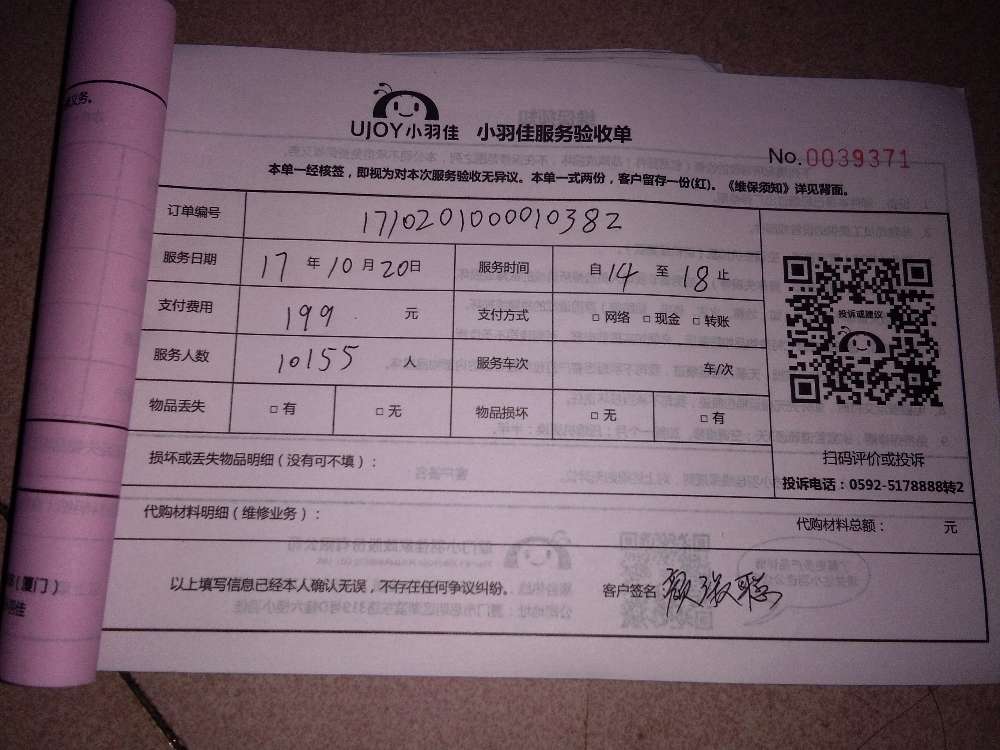 义务。
UJOY小羽佳 小羽佳服务验收单
No.0039371
本单一经核签，即视为对本次服务验收无异议。本单一式两份，客户留存一份(红)。《维保须知》详见背面。
订单编号 1710201000010382
服务日期 17年10月20日 服务时间 自14至18止
支付费用 199元 支付方式 □网络 □现金 □转账
投诉或建议
服务人数 10155人 服务车次 车/次
物品丢失 □有 □无 物品损坏 □无 □有
损坏或丢失物品明细（没有可不填）：
扫码评价或投诉
投诉电话：0592-5178888转2
代购材料明细（维修业务）： 代购材料总额： 元
（厦门）
羽佳
以上填写信息已经本人确认无误，不存在任何争议纠纷。 客户签名